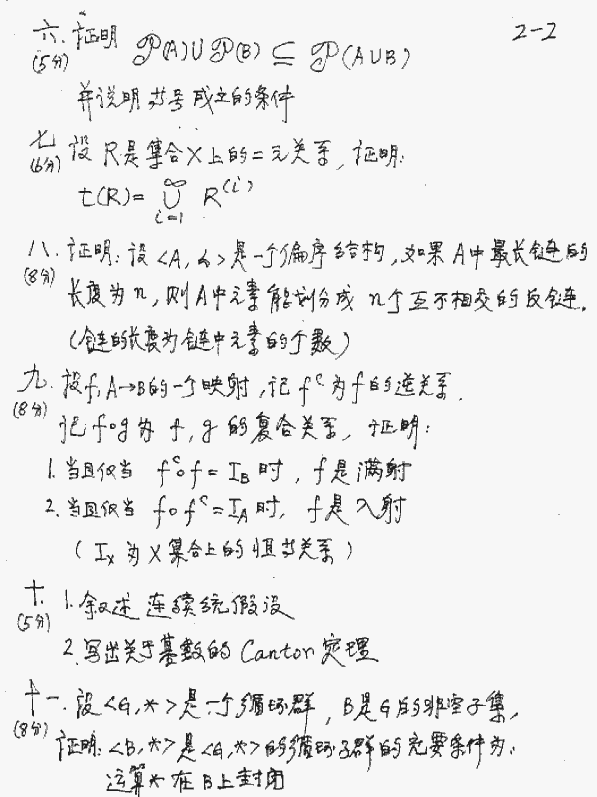 2-2
六. 证明 𝒫(A)∪𝒫(B) ⊆ 𝒫(A∪B)
(5分)
并说明等号成立的条件
七 设 R是集合X上的二元关系, 证明:
(6分)
t(R)= ∞∪i=1 R^(i)
八. 证明: 设 <A, ≼> 是一个偏序结构, 如果 A中最长链的
(8分)
长度为 n, 则A中元素能划分成 n个互不相交的反链.
(链的长度为链中元素的个数)
九. 设f: A→B的一个映射, 记 f^c 为 f 的逆关系.
(8分)
记 f∘g 为 f, g 的复合关系, 证明:
1. 当且仅当 f^c∘f = I_B 时, f 是满射
2. 当且仅当 f∘f^c = I_A 时, f是入射
( I_x 为 X 集合上的恒等关系 )
十. 1. 叙述 连续统假设
(5分)
2. 写出关于基数的 Cantor 定理
十一. 设<G, *> 是一个循环群, B是G的非空子集,
(8分)
证明: <B, *> 是 <G, *> 的循环子群的充要条件为:
运算 * 在 B 上封闭